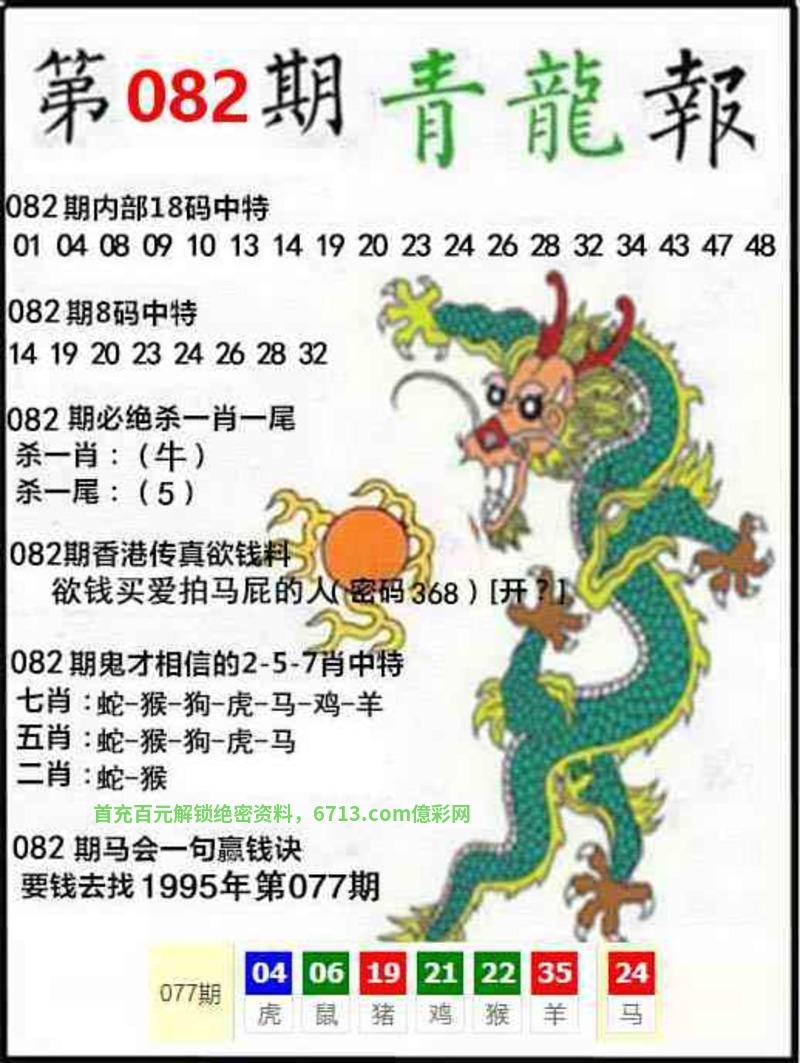 第082期青龍報
082期内部18码中特
01 04 08 09 10 13 14 19 20 23 24 26 28 32 34 43 47 48
082期8码中特
14 19 20 23 24 26 28 32
082期必绝杀一肖一尾
杀一肖：（牛）
杀一尾：（5）
082期香港传真欲钱料
欲钱买爱拍马屁的人（密码368）[开？]
082期鬼才相信的2-5-7肖中特
七肖：蛇-猴-狗-虎-马-鸡-羊
五肖：蛇-猴-狗-虎-马
二肖：蛇-猴
首充百元解锁绝密资料，6713.com億彩网
082期马会一句赢钱诀
要钱去找1995年第077期
077期 04 06 19 21 22 35 24
虎 鼠 猪 鸡 猴 羊 马